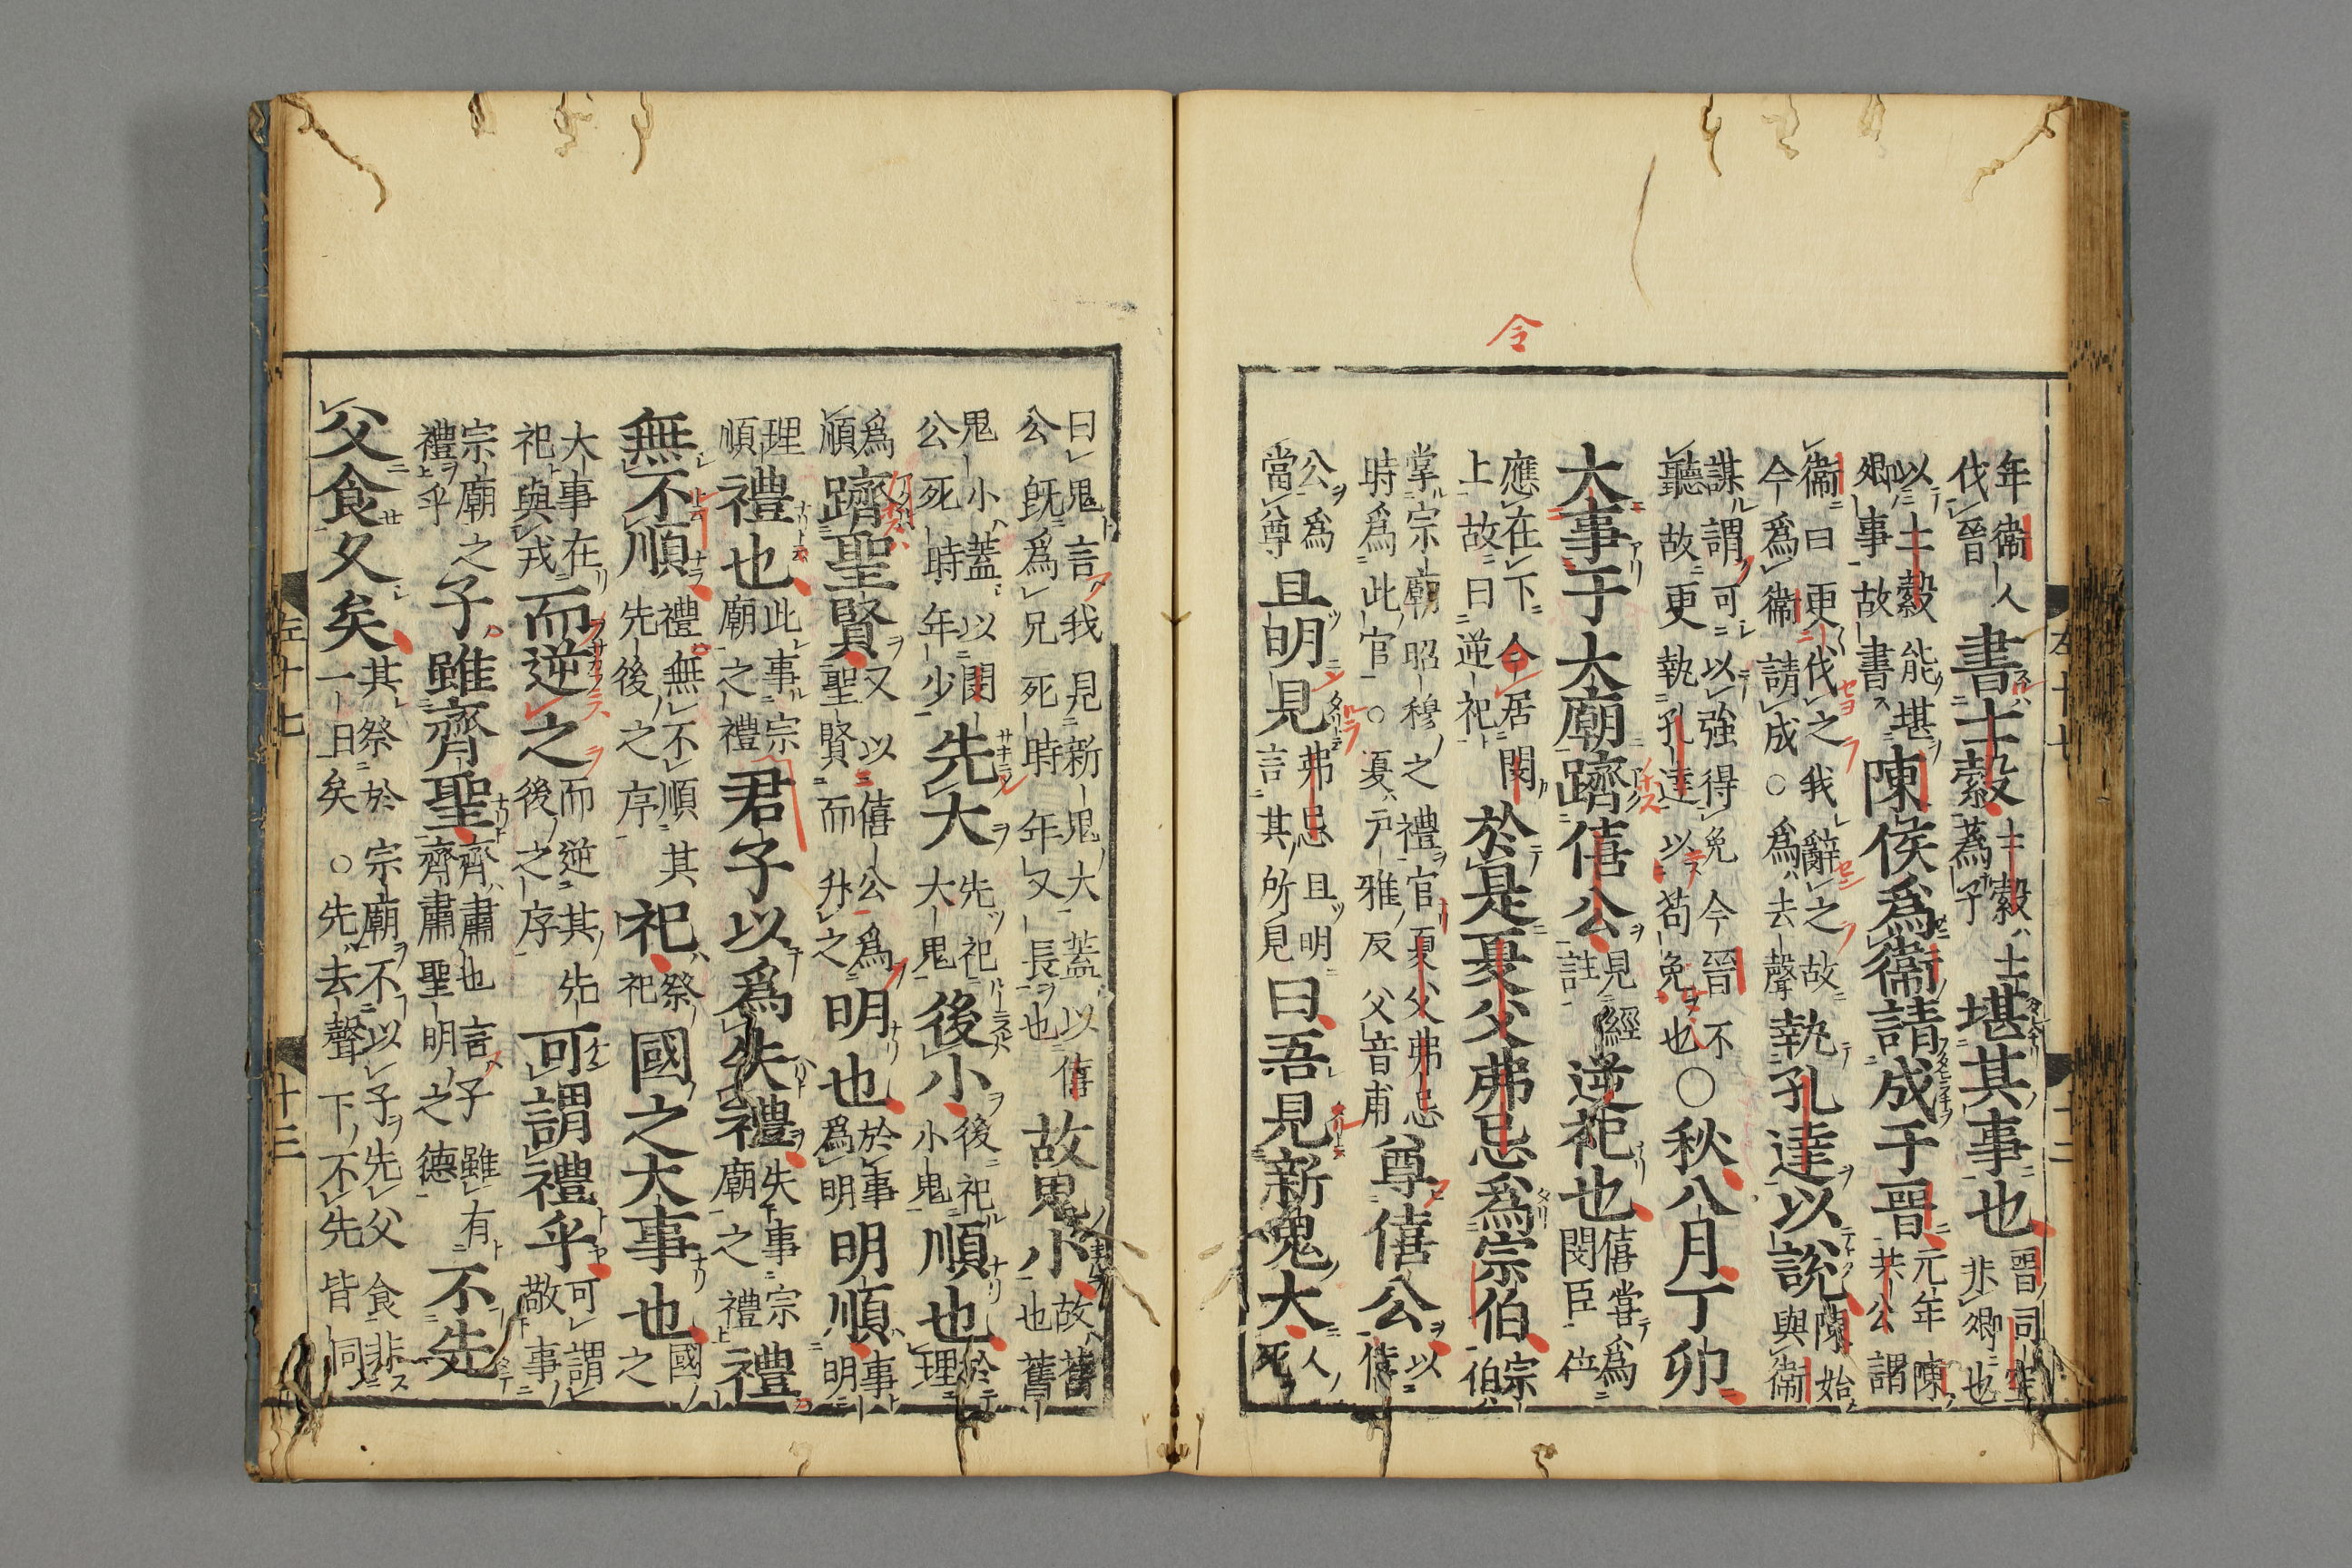 令
年衞人伐晉書士縠士縠士蔿子堪其事也晉司空非卿也
以士縠能堪卿事故書陳侯爲衞請成于晉元年陳共公謂
衞曰更伐之我辭之故今爲衞請成○爲去聲執孔達以說陳始與衞
謀謂可以強得免今晉不聽故更執孔達以苟免也○秋八月丁卯
大事于大廟躋僖公見經註逆祀也僖嘗爲閔臣位
應在下令居閔上故曰逆祀於是夏父弗忌爲宗伯宗伯
掌宗廟昭穆之禮官夏父弗忌時爲此官○夏戸雅反父音甫尊僖公以僖
公爲當尊且明見弗忌且明言其所見曰吾見新鬼大人死
曰鬼言我見新鬼大蓋以僖公旣爲兄死時年又長也故鬼小故舊也舊
鬼小蓋以閔公死時年少先大先祀大鬼後小後祀小鬼順也於理
爲順躋聖賢又以僖公爲聖賢而升之明也於事爲明明順事明
理順禮也此事宗廟之禮君子以爲失禮失事宗廟之禮禮
無不順禮無不順其先後之序祀祭祀國之大事也國之
大事在祀與戎而逆之而逆其先後之序可謂禮乎可謂敬事
宗廟之禮乎子雖齊聖齊肅也言子雖有齊肅聖明之德不先
父食久矣其祭於宗廟不以子先父食非一日矣○先去聲下不先皆同
左十七
十三